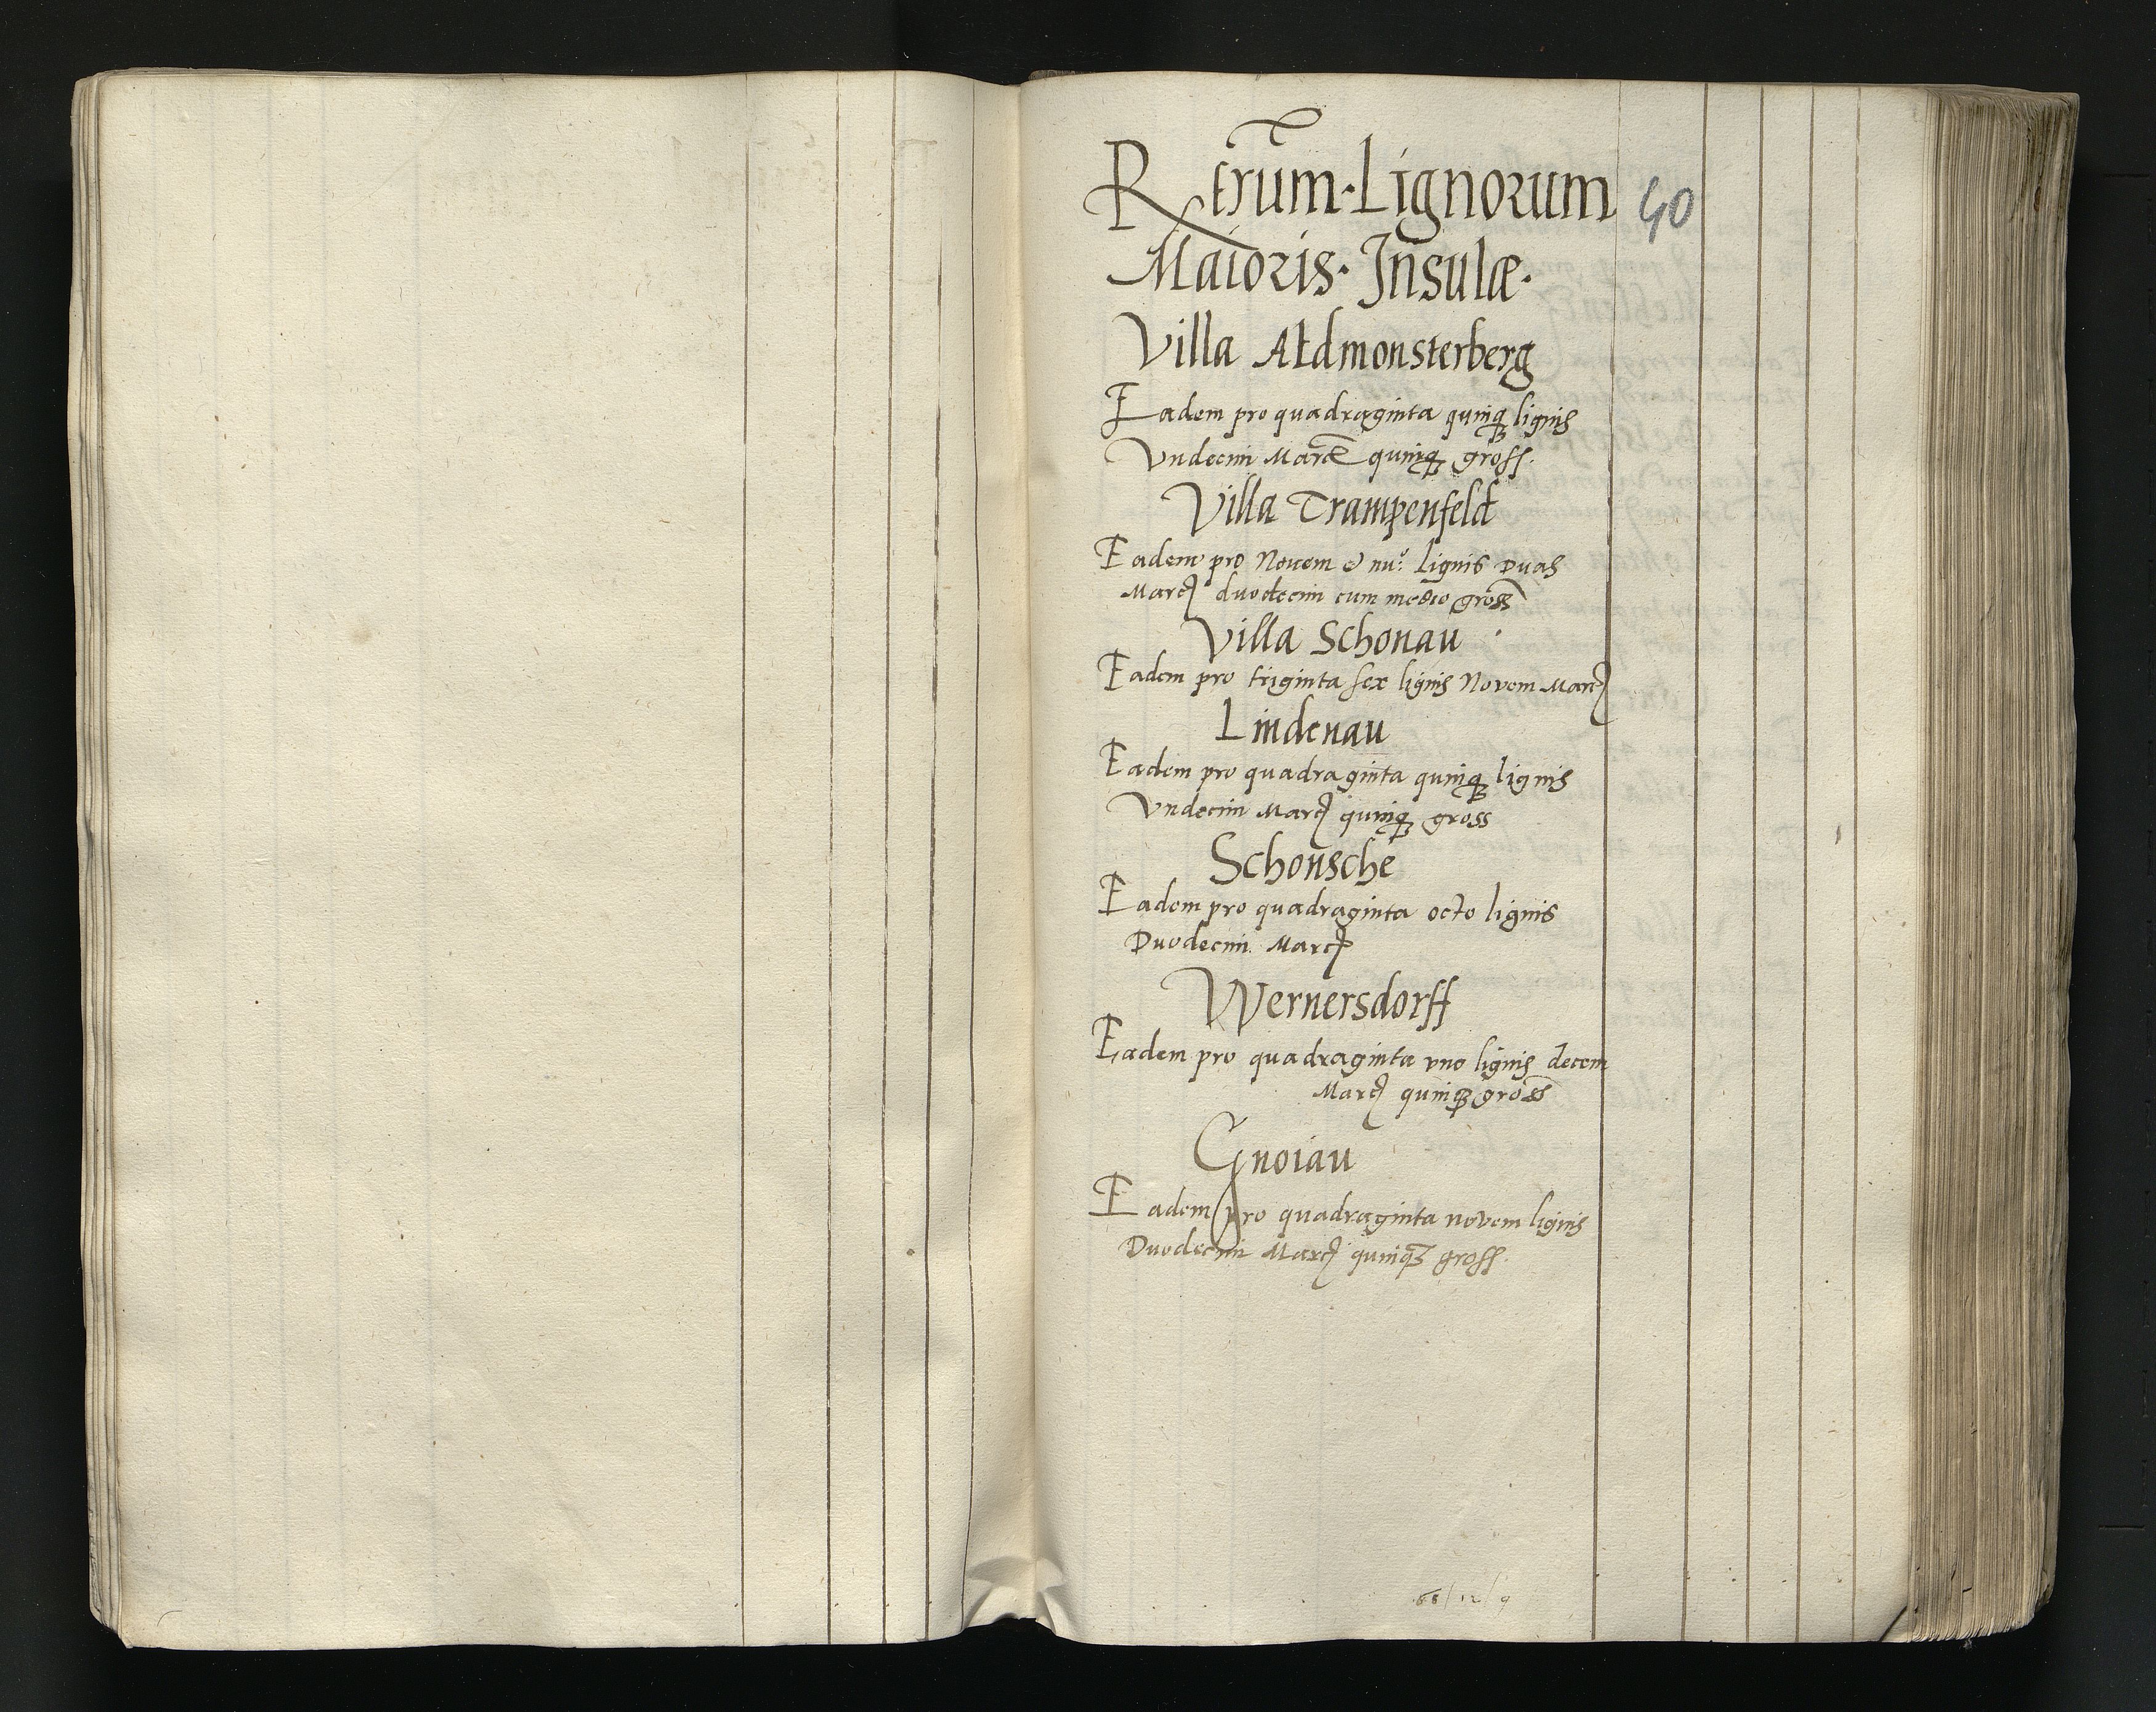 Rerum · Lignorum
40
Maioris · Insulæ ·
Villa Aldmonsterberg
Eadem pro quadraginta quinqȝ lignis
Vndecim Marcæ quinqȝ gross.
Villa Trampenfeld
Eadem pro Novem & lignis Duas
Marcȝ duodecim cum medio gross
Villa Schonau
Eadem pro triginta sex lignis Novem Marcȝ
Lindenau
Eadem pro quadraginta quinqȝ lignis
Vndecim Marcȝ quinqȝ gross
Schonsche
Eadem pro quadraginta octo lignis
Duodecim Marcȝ
Wernersdorff
Eadem pro quadraginta vno lignis decem
Marcȝ quinqȝ gross
Gnoiau
Eadem pro quadraginta novem lignis
Duodecim Marcȝ quinqȝ gross.
68 / 12 / 9